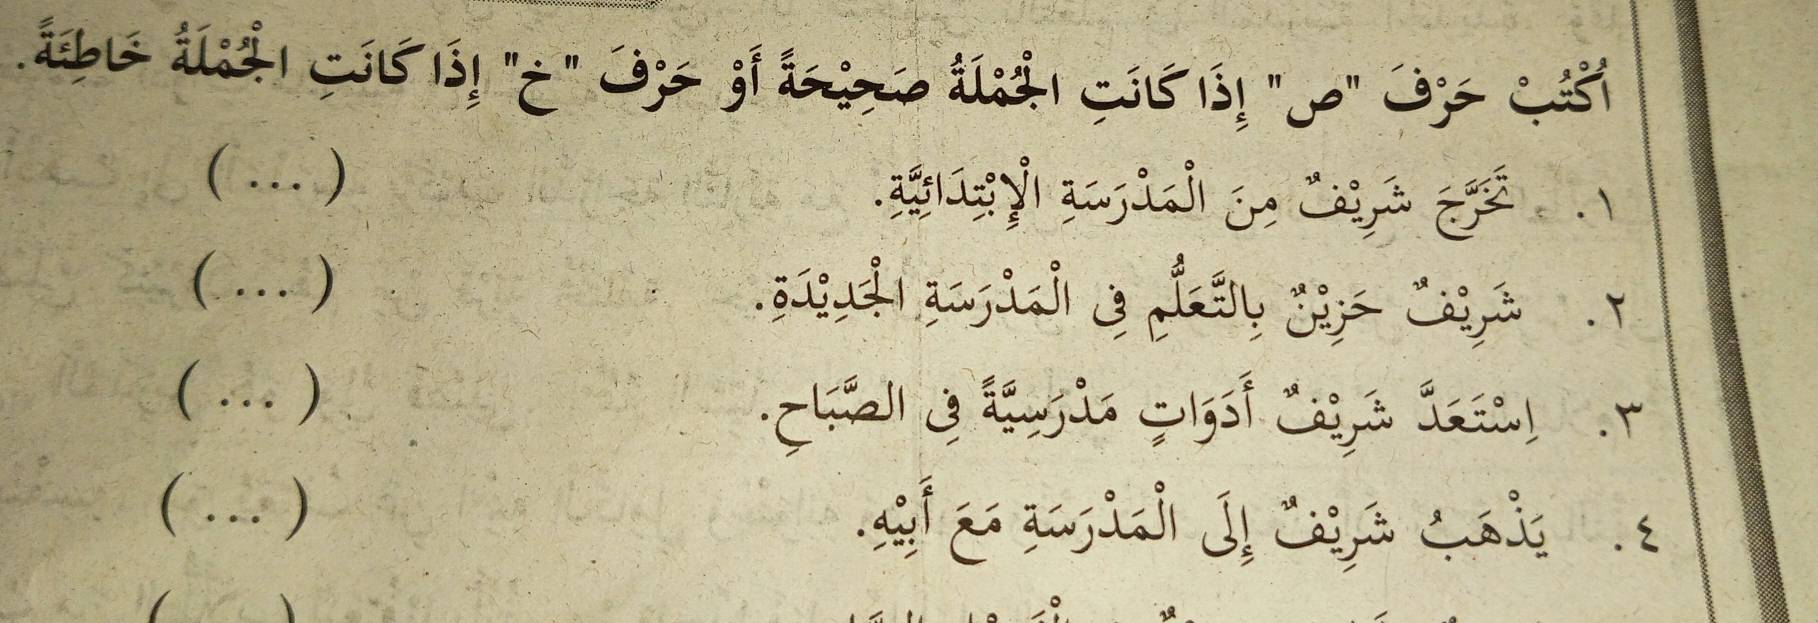 اُكْتُبْ حَرْفَ "ص" إِذَا كَانَتِ الْجُمْلَةُ صَحِيْحَةً أَوْ حَرْفَ "خ" إِذَا كَانَتِ الْجُمْلَةُ خَاطِئَةً.
١. تَخَرَّجَ شَرِيْفٌ مِنَ الْمَدْرَسَةِ الْإِبْتِدَائِيَّةِ. (...)
٢. شَرِيْفٌ حَزِيْنٌ بِالتَّعَلُّمِ فِى الْمَدْرَسَةِ الْجَدِيْدَةِ. (...)
٣. اِسْتَعَدَّ شَرِيْفٌ أَدَوَاتٍ مَدْرَسِيَّةً فِى الصَّبَاحِ. (...)
٤. يَذْهَبُ شَرِيْفٌ إِلَى الْمَدْرَسَةِ مَعَ أَبِيْهِ. (...)